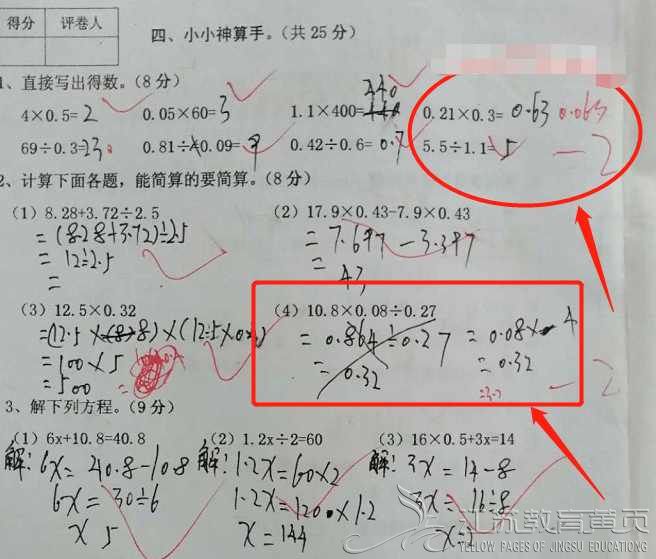 得分 评卷人
四、小小神算手。(共 25 分)
1、直接写出得数。(8 分)
4×0.5= 2 0.05×60= 3 1.1×400= 440 0.21×0.3= 0.63 0.063
69÷0.3= 23. 0.81÷0.09= 9 0.42÷0.6= 0.7 5.5÷1.1= 5 -2
2、计算下面各题,能简算的要简算。(8 分)
(1) 8.28+3.72÷2.5 (2) 17.9×0.43-7.9×0.43
=(8.28+3.72)÷2.5 = 7.697-3.397
= 12÷2.5 = 43
=
(3) 12.5×0.32 (4) 10.8×0.08÷0.27
= 0.864÷0.27 = 0.08× 4
= 100×5 = 0.32 = 0.32
= 500 = -2
3、解下列方程。(9 分)
(1) 6x+10.8=40.8 (2) 1.2x÷2=60 (3) 16×0.5+3x=14
解: 6x= 40.8-10.8 解: 1.2x=60×2 解: 3x=14-8
6x=30÷6 1.2x=120×1.2 3x=16÷8
x 5 x=144
江苏教育黄页
YELLOW PAGES OF JINGSU EDUCATIONG